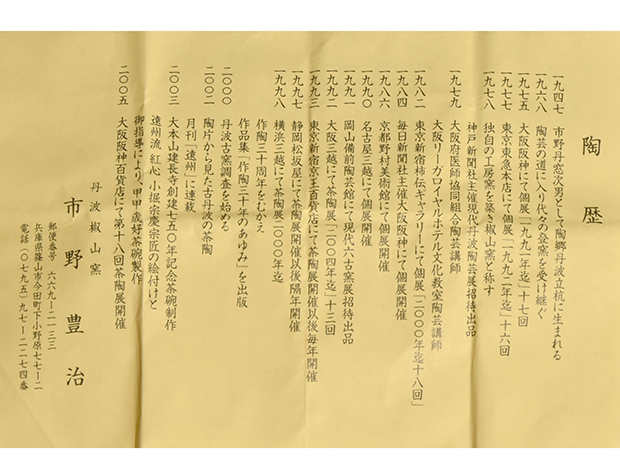 陶歴
一九四七 市野丹窓次男として陶郷丹波立杭に生まれる
一九六八 陶芸の道に入り代々の登窯を受け継ぐ
一九七五 大阪阪神にて個展「一九九一年迄」十七回
一九七七 東京東急本店にて個展「一九九二年迄」十六回
一九七八 独自の工房窯を築き椒山窯と称す
神戸新聞社主催現代丹波陶芸展招待出品
一九七九 大阪府医師協同組合陶芸講師
大阪リーガロイヤルホテル文化教室陶芸講師
一九八二 東京新宿柿伝ギャラリーにて個展「二〇〇〇年迄十八回」
一九八四 毎日新聞社主催大阪阪神にて個展開催
一九八六 京都野村美術館にて個展開催
一九九〇 名古屋三越にて個展開催
一九九一 岡山備前陶芸館にて現代六古窯展招待出品
一九九二 大阪三越にて茶陶展「二〇〇四年迄」十三回
一九九三 東京新宿京王百貨店にて茶陶展開催以後毎年開催
一九九七 静岡松坂屋にて茶陶展開催以後隔年開催
一九九八 横浜三越にて茶陶展二〇〇〇年迄
作陶三十周年をむかえ
作品集「作陶三十年のあゆみ」を出版
二〇〇〇 丹波古窯調査を始める
二〇〇二 陶片から見た古丹波の茶陶
月刊「遠州」に連載
二〇〇三 大本山建長寺創建七五〇年記念茶碗制作
遠州流 紅心 小堀宗慶宗匠の絵付けと
御指導により「甲甲」歳好茶碗製作
二〇〇五 大阪阪神百貨店にて第十八回茶陶展開催
丹波 椒山窯
市野豊治
郵便番号 六六九-二一三三
兵庫県篠山市今田町下小野原七七-二
電話(〇七九五)九七-二二七四番